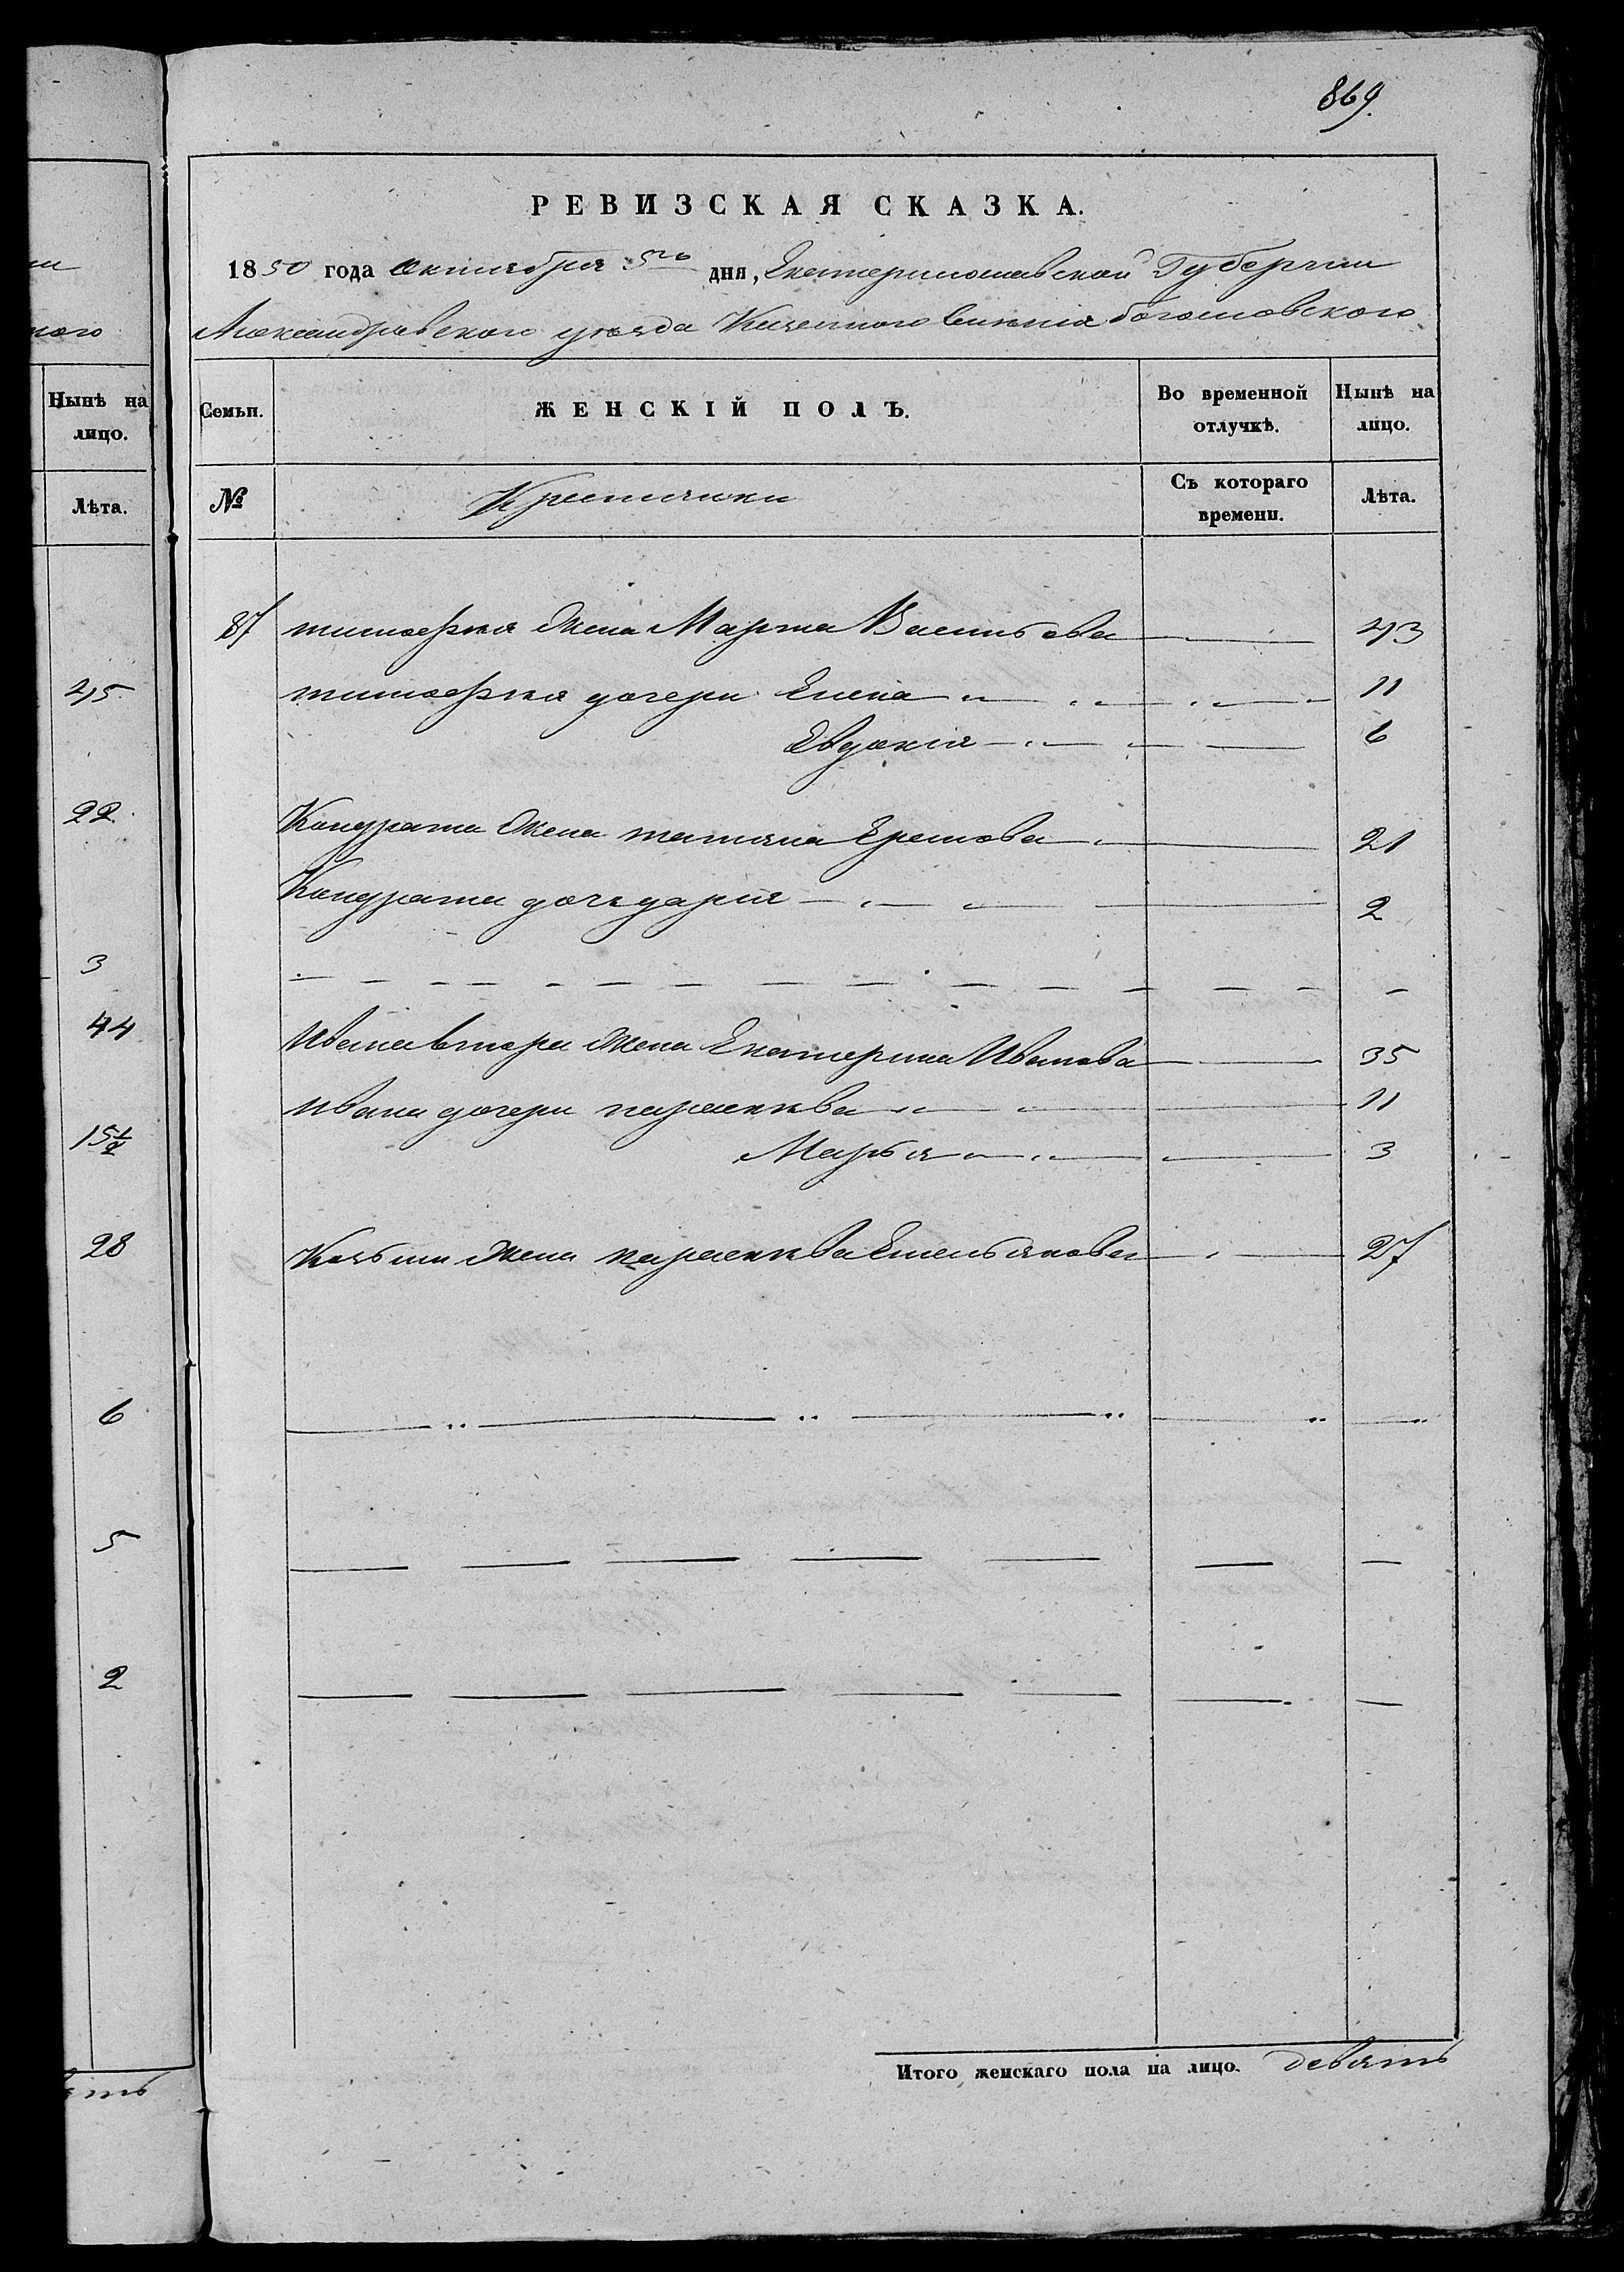 ии
ного
Нынѣ на
лицо.
Лѣта.
45
22
3
44
15½
28
6
5
2
869.
РЕВИЗСКАЯ СКАЗКА.
1850 года октября 5го дня, Екатеринославской Губернии
Александровского уезда Казенного Селения богословского
Семьи.
ЖЕНСКІЙ ПОЛЪ.
Во временной отлучкѣ.
Нынѣ на лицо.
№
Крестьянки
Съ котораго времени.
Лѣта.
87 тимофея жена Марта Васильева 43
тимофея дочери Елена 11
Евдокія 6
Кондрата жена татьяна 21
Кондрата дочь дарія 2
Ивана втора жена Екатерина Иванова 35
ивана дочери парасковва 11
Марья 3
Козьмы жена парасковва Емельянова 27
Итого женскаго пола на лицо. девять